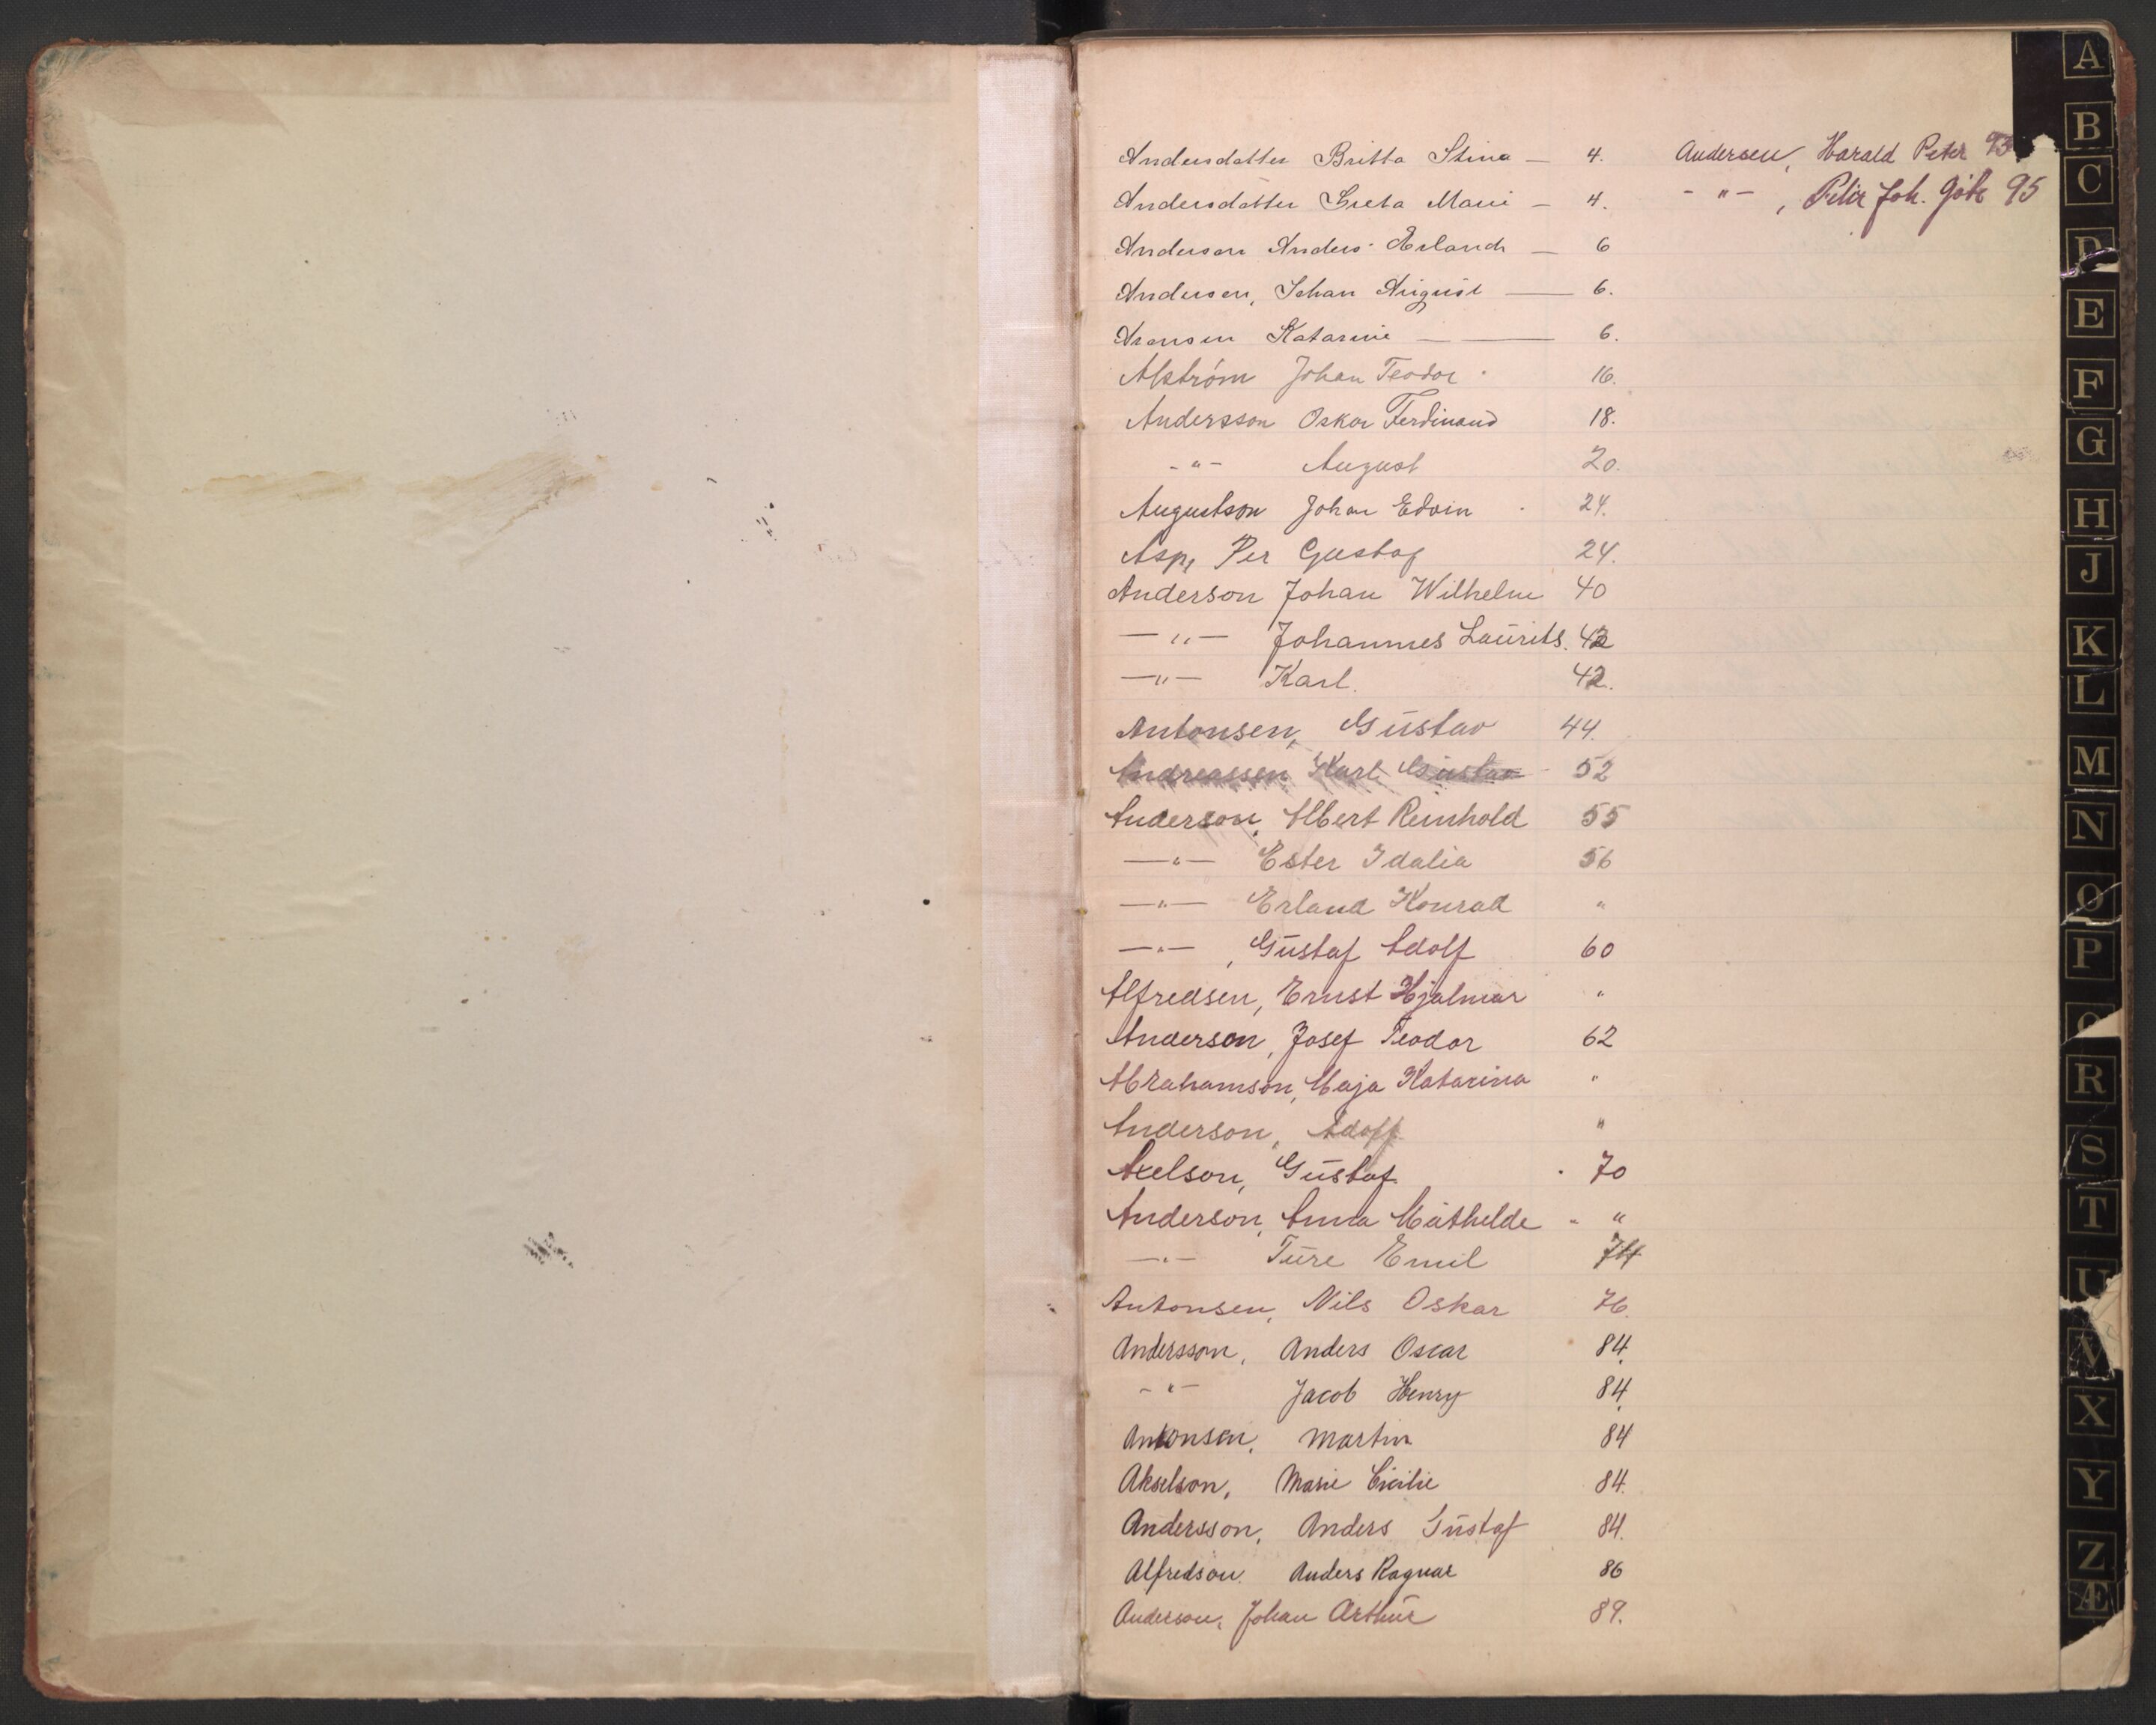 Andersdatter Britta Stina — 4.
Andersdatter Greta Marie — 4.
Anderson Anders Erland — 6
Andersen, Johan August — 6.
Aronsen Katarine — — 6.
Alström Johan Teodor 16.
Andersson Oskar Ferdinand 18.
-"- August 20.
Augustson Johan Edvin 24.
Asp, Per Gustaf 24.
Anderson Johan Wilhelm 40
—"— Johannes Laurits. 42
—"— Karl. 42.
Antonsen, Gustav 44.
Andreassen Karl Gustav 52
Anderson, Albert Reinhold 55
—"— Ester Idalia 56
—"— Erland Konrad "
—"—, Gustaf Adolf 60
Alfredsen, Ernst Hjalmar "
Anderson, Josef Teodor 62
Abrahamson, Maja Katarina "
Anderson, Adolf "
Axelson, Gustaf. 70
Anderson, Anna Mathelde - "
—"— Ture Emil 74
Antonsen, Nils Oskar 76.
Andersson, Anders Oscar 84.
-"- Jacob Henry 84.
Antonsen, Martin 84
Akselson, Marie Cicilie 84.
Andersson, Anders Gustaf 84.
Alfredson. Anders Ragnar 86
Anderson, Johan Arthur 89.
Andersen, Harald Peter 93
-"-, Peter Joh. 95
A
B
C
D
E
F
G
H
J
K
L
M
N
O
P
R
S
T
U
V
X
Y
Z
Æ